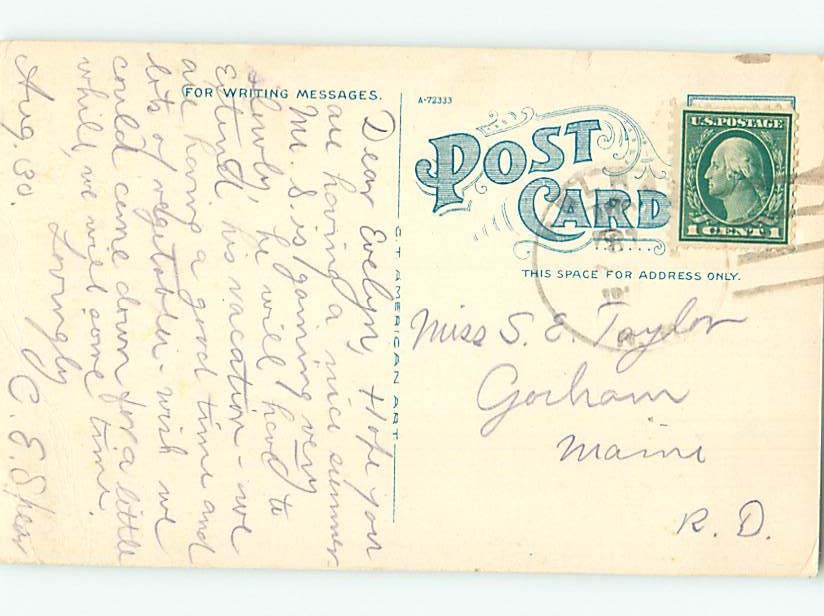 FOR WRITING MESSAGES.
Dear Evelyn, Hope you
are having a nice summer.
Mr. S. is gaining very
slowly, he will have to
Extend his vacation - we
are having a good time and
lots of vegetables - wish we
could come down for a little
while, we will some time.
Lovingly
Aug. 30. C. E. Spear
C.T. AMERICAN ART
A-72333
POST CARD
U.S. POSTAGE
1 CENT 1
THIS SPACE FOR ADDRESS ONLY.
Miss S. E. Taylor
Gorham
Maine
R. D.